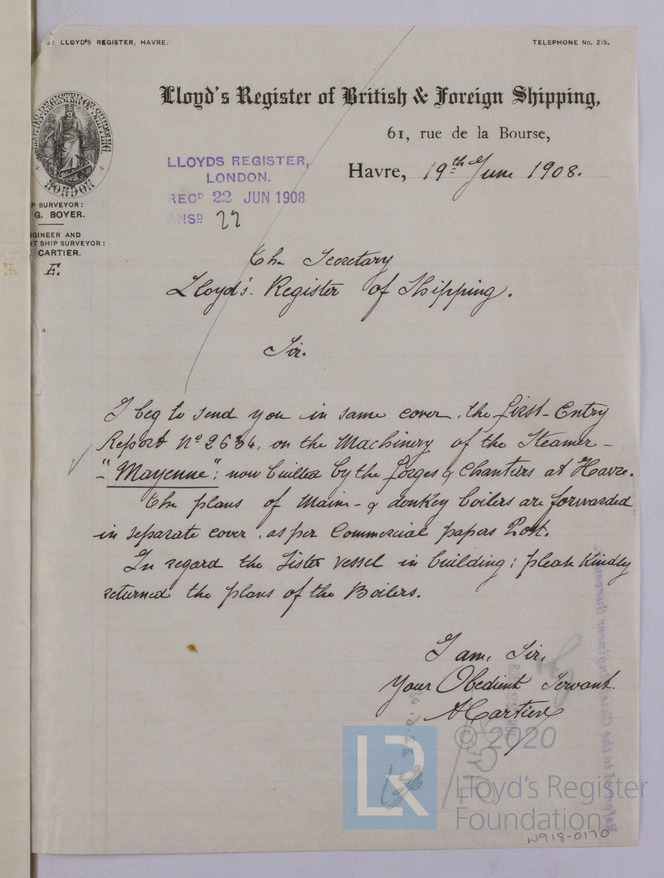 : LLOYD'S REGISTER, HAVRE.
TELEPHONE No. 215.
Lloyd's Register of British & Foreign Shipping,
61, rue de la Bourse,
Havre, 19th June 1908.
LLOYDS REGISTER,
LONDON.
RECD 22 JUN 1908
ANSD 22
LONDON
P SURVEYOR:
G. BOYER.
GINEER AND
NT SHIP SURVEYOR:
CARTIER.
E.
The Secretary
Lloyd's Register of Shipping.
Sir.
I beg to send you in same cover, the first-Entry
Report No 2634, on the Machinery of the Steamer-
-"Mayenne"; now builted by the forges & Chantiers at Havre.
The plans of Main- & donkey boilers are forwarded
in separate cover, as per Commercial papers Post.
In regard the Sister vessel in building; please Kindly
returned the plans of the Boilers.
I am, Sir,
Your Obedient Servant
A Cartier
© 2020
LR
Lloyd's Register
Foundation
W918-0170